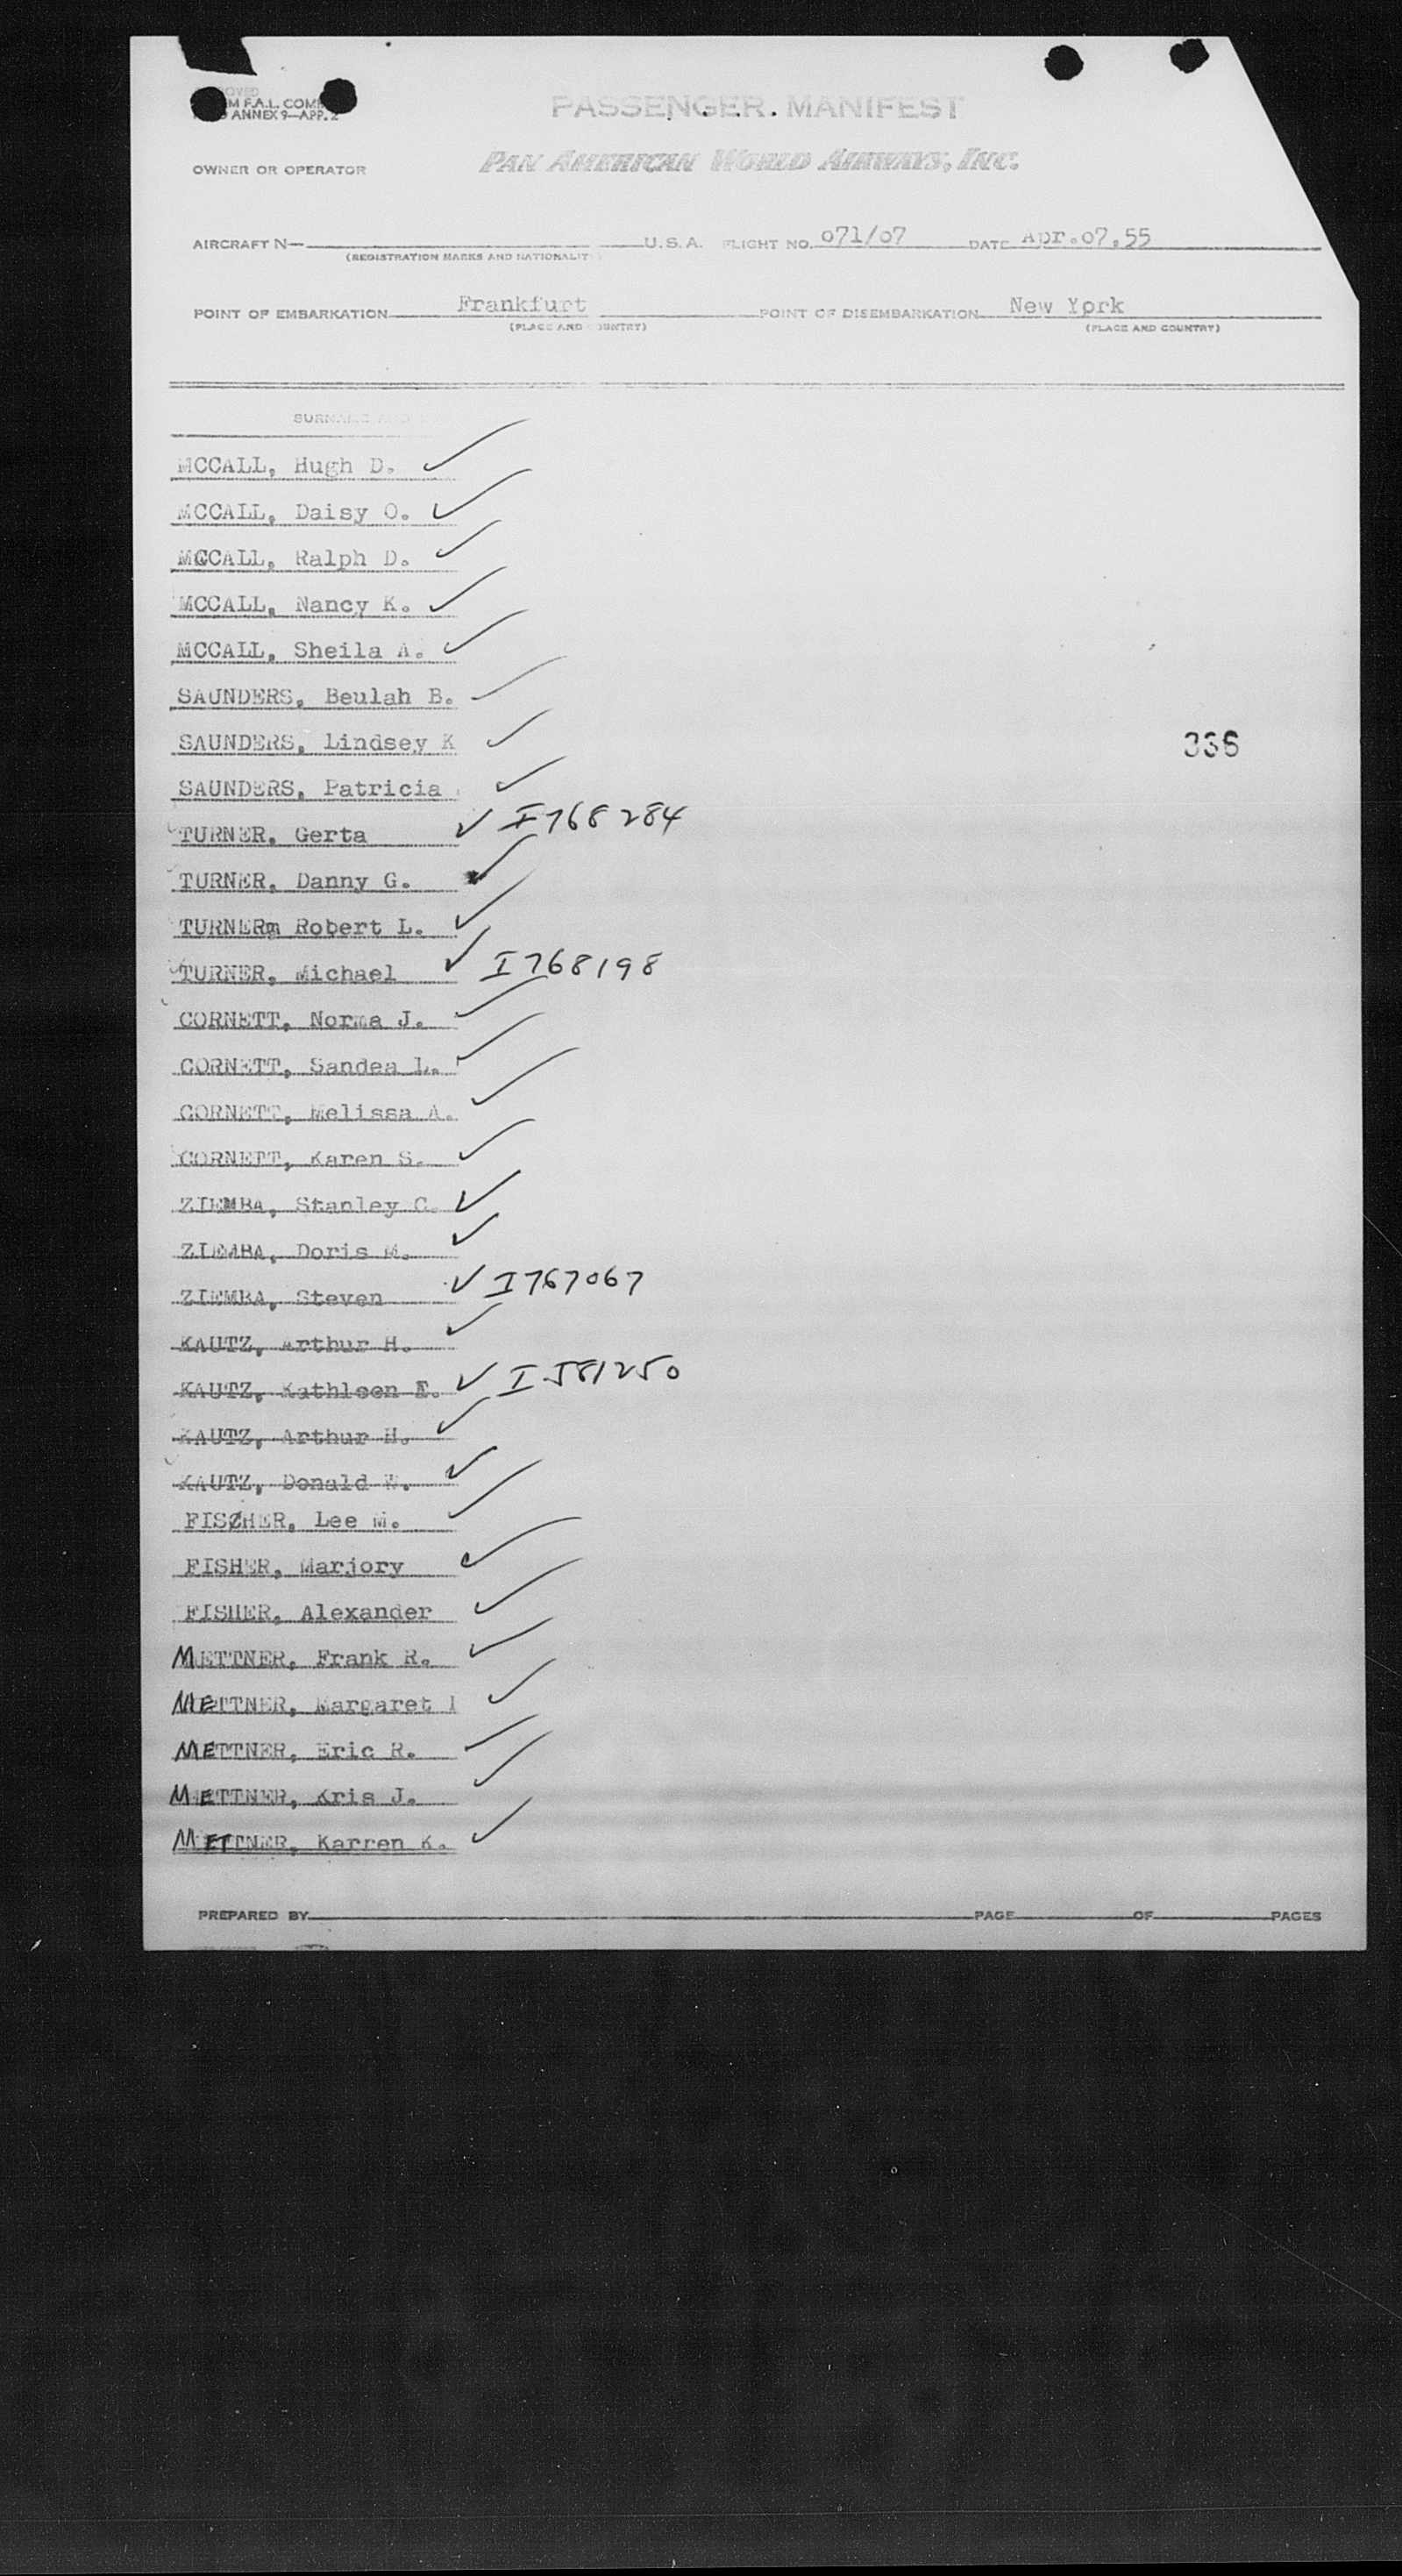 M F.A.L. COM
ANNEX 9—APP. 2
PASSENGER MANIFEST
OWNER OR OPERATOR PAN AMERICAN WORLD AIRWAYS, INC.
AIRCRAFT N— U.S.A. FLIGHT NO. 071/07 DATE Apr.07,55
(REGISTRATION MARKS AND NATIONALIT
POINT OF EMBARKATION Frankfurt POINT OF DISEMBARKATION New York
(PLACE AND COUNTRY) (PLACE AND COUNTRY)
MCCALL, Hugh D.
MCCALL, Daisy O.
MCCALL, Ralph D.
MCCALL, Nancy K.
MCCALL, Sheila A.
SAUNDERS, Beulah B.
SAUNDERS, Lindsey K 336
SAUNDERS, Patricia
TURNER, Gerta ✓ I768284
TURNER, Danny G.
TURNERm Robert L.
TURNER, Michael ✓ I768198
CORNETT, Norma J.
CORNETT, Sandea L.
CORNETT, Melissa A.
CORNETT, Karen S.
ZIEMBA, Stanley C.
ZIEMBA, Doris M.
ZIEMBA, Steven ✓ I767067
KAUTZ, Arthur H.
KAUTZ, Kathleen E. ✓ I581250
KAUTZ, Arthur H.
KAUTZ, Donald W.
FISCHER, Lee M.
FISHER, Marjory
FISHER, Alexander
METTNER, Frank R.
METTNER, Margaret
METTNER, Eric R.
METTNER, Kris J.
METTNER, Karren K.
PREPARED BY PAGE OF PAGES